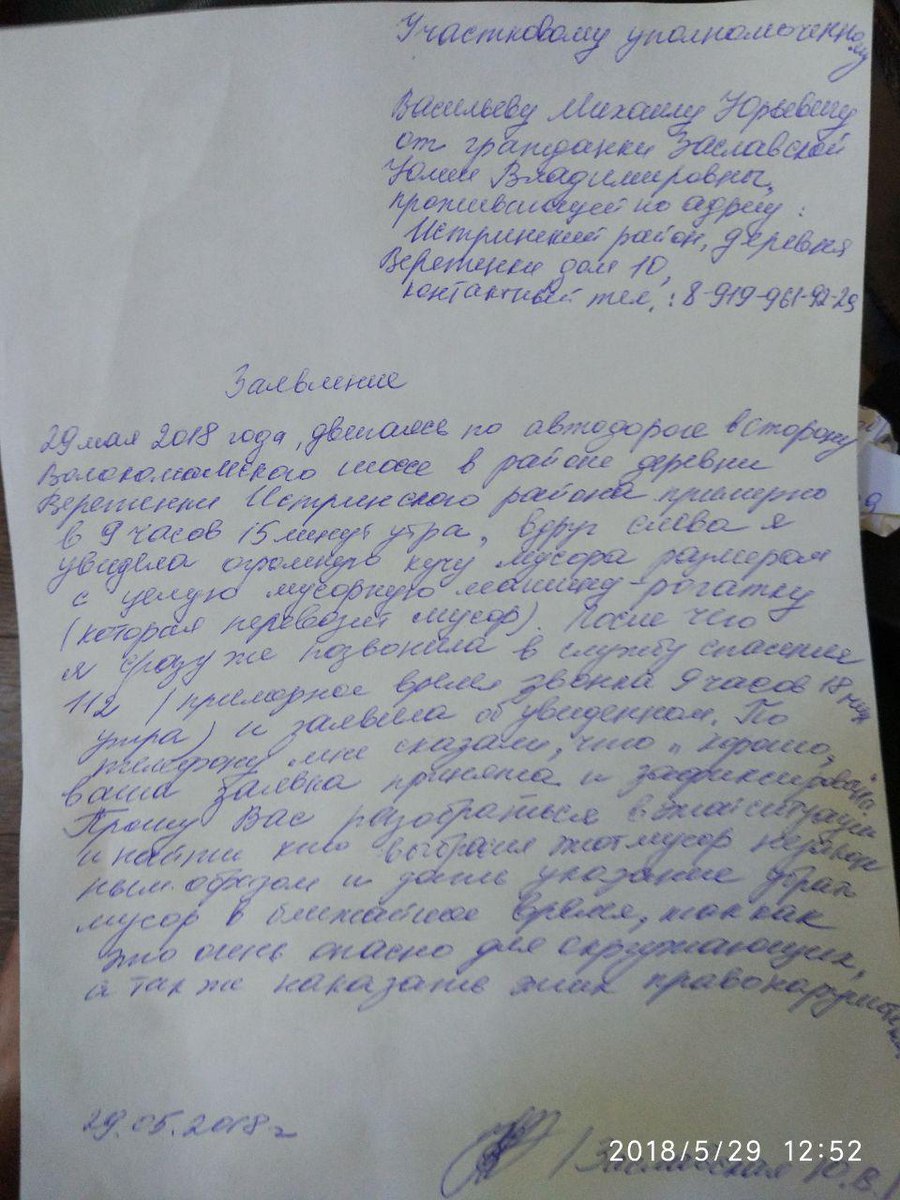 Участковому уполномоченному
Васильеву Михаилу Юрьевичу
от гражданки Заславской
Юлии Владимировны,
проживающей по адресу:
Истринский район, деревня
Веретенки дом 10,
контактный тел.: 8-919-961-92-29
Заявление
29 мая 2018 года, двигаясь по автодороге в сторону
Волоколамского шоссе в районе деревни
Веретенки Истринского района примерно
в 9 часов 15 минут утра, вдруг слева я
увидела огромную кучу мусора размером
с целую мусорную машину-рогатку
(которая перевозит мусор). После чего
я сразу же позвонила в службу спасения
112 (примерное время звонка 9 часов 18 мин
утра) и заявила об увиденном. По
телефону мне сказали, что "хорошо,
ваша заявка принята и зафиксирована".
Прошу Вас разобраться в этой ситуации
и найти кто выбросил этот мусор незакон
ным образом и дать указание убрать
мусор в ближайшее время, так как
это очень опасно для окружающих,
а так же наказать этих правонарушителей
29.05.2018г
/Заславская Ю.В./
2018/5/29 12:52